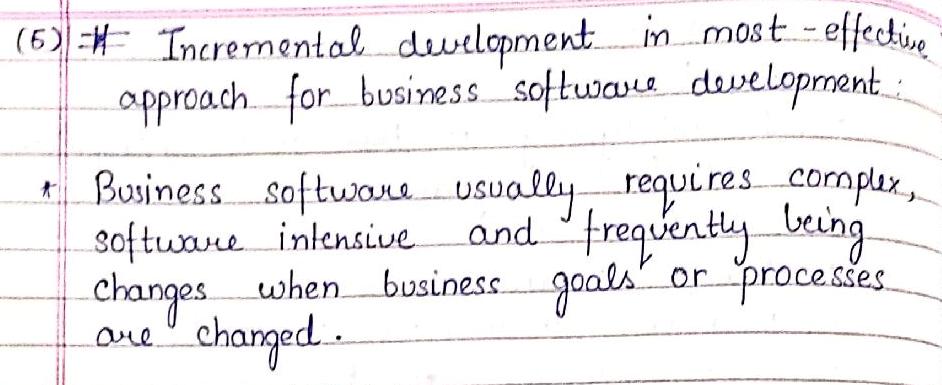 (5) # Incremental development in most-effective
approach for business software development:
* Business software usually requires complex,
software intensive and frequently being
changes when business goals or processes
are changed.